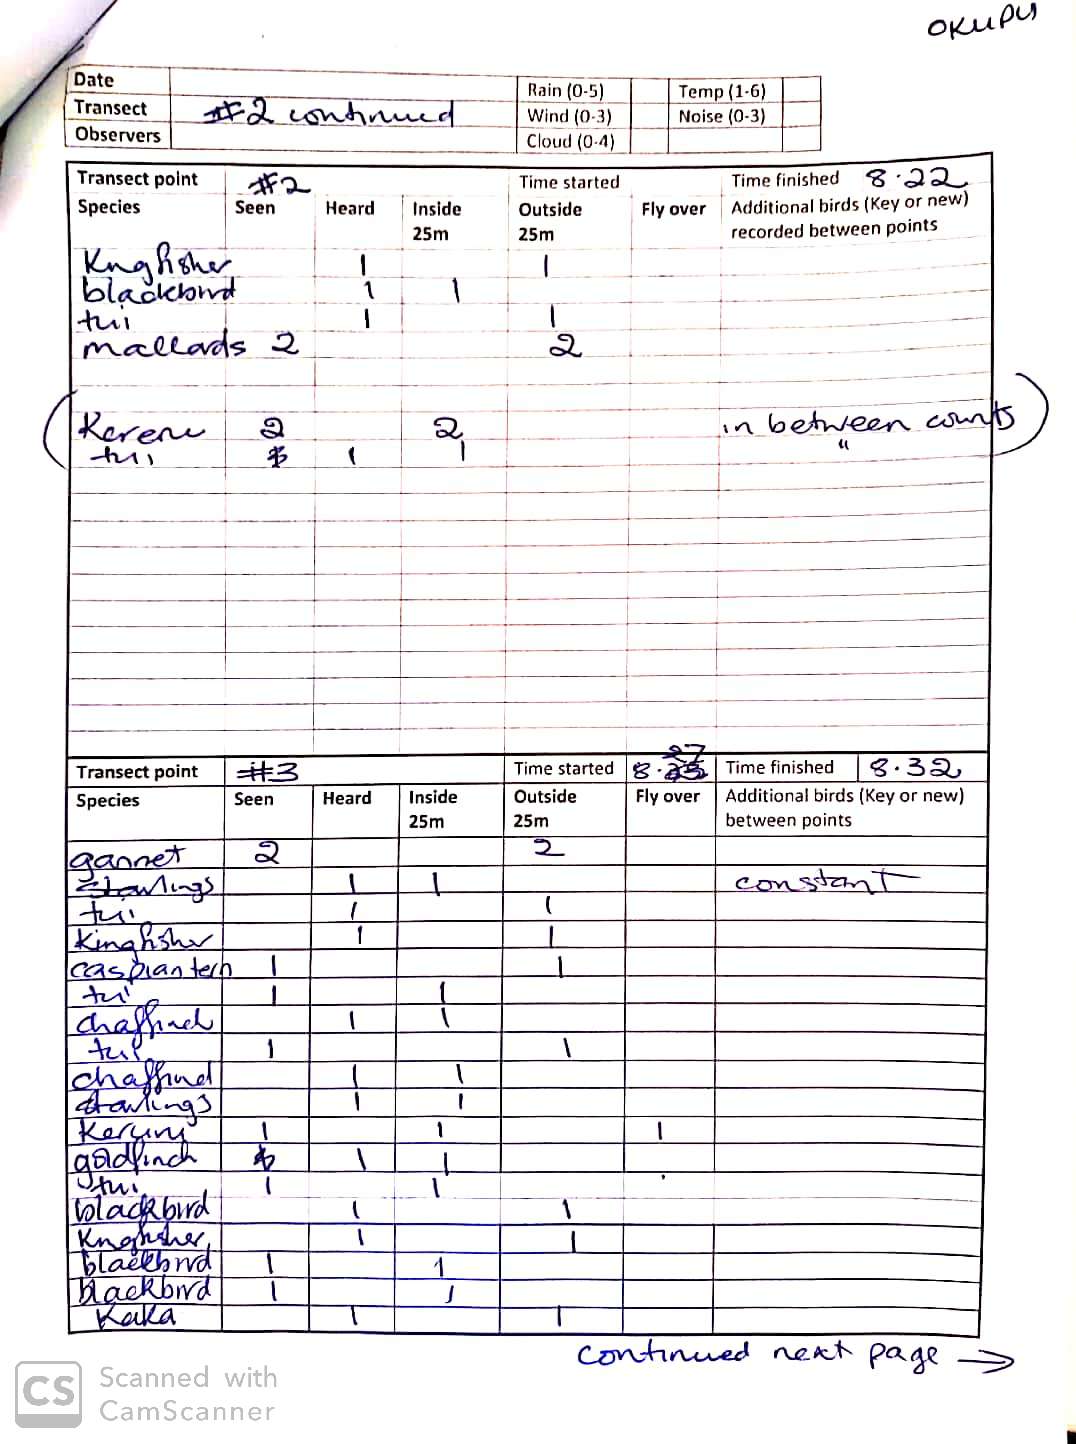 OKUPU
Date
Transect #2 continued
Observers
Rain (0-5) Temp (1-6)
Wind (0-3) Noise (0-3)
Cloud (0-4)
Transect point #2 Time started Time finished 8.22
Species Seen Heard Inside 25m Outside 25m Fly over Additional birds (Key or new) recorded between points
Kngfisher 1 1
blackbird 1 1
tui 1 1
mallards 2 2
(Kereru 2 2 in between counts)
tui 1 1 "
Transect point #3 Time started 8.27 Time finished 8.32
Species Seen Heard Inside 25m Outside 25m Fly over Additional birds (Key or new) between points
gannet 2 2
starlings 1 1 constant
tui 1 1
kingfisher 1 1
caspian tern 1 1
tui 1 1
chaffinch 1 1
tui 1 1
chaffinch 1 1
starlings 1 1
Kereru 1 1 1
goldfinch 1 1
tui 1 1
blackbird 1 1
Kngfisher 1 1
blackbird 1 1
blackbird 1 1
Kaka 1 1
continued next page →
CS Scanned with CamScanner